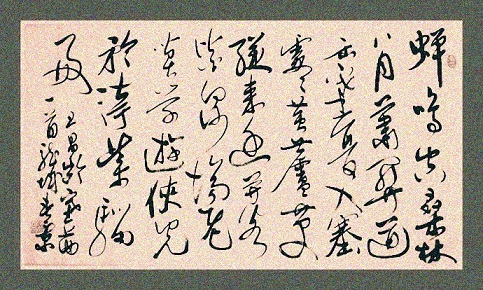 蟬鳴空桑林
八月蕭關道
出塞復入塞
處々黃蘆草
從來幽并客
皆向沙場老
莫學遊俠兒
矜誇紫騮
好
王昌齡塞
一首